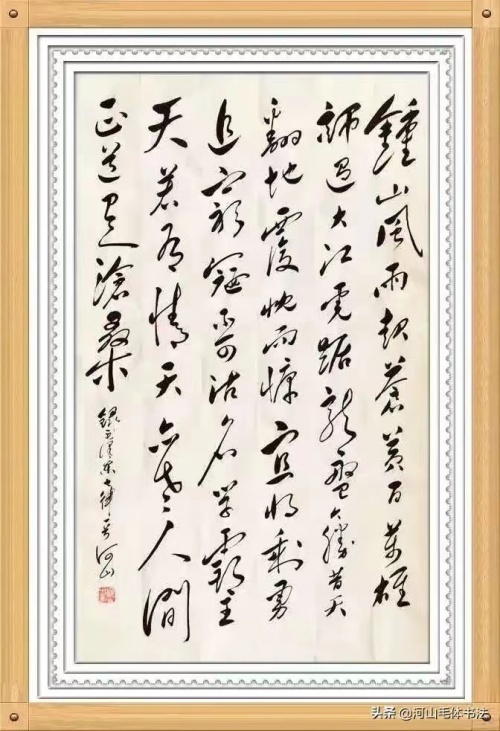 鍾山風雨起蒼黃百萬雄
師過大江虎踞龍盤今勝昔天
翻地覆慨而慷宜將剩勇
追窮寇不可沽名學霸主
天若有情天亦老人間
正道是滄桑
錄毛澤東七律一首河山
头条 @河山毛体书法